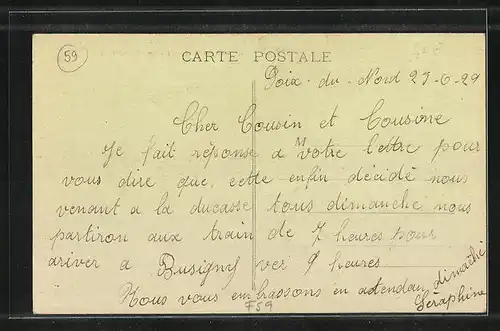 59
CARTE POSTALE
Poix-du-Nord 23-6-29
Cher Cousin et Cousine
Je fait réponse a votre lettre pour
vous dire que cette enfin décidé nous
venant a la ducasse tous dimanche nous
partiron aux train de 7 heures pour
ariver a Busigny ver 9 heures
Nous vous embrassons en atendan dimache
Séraphine
F59